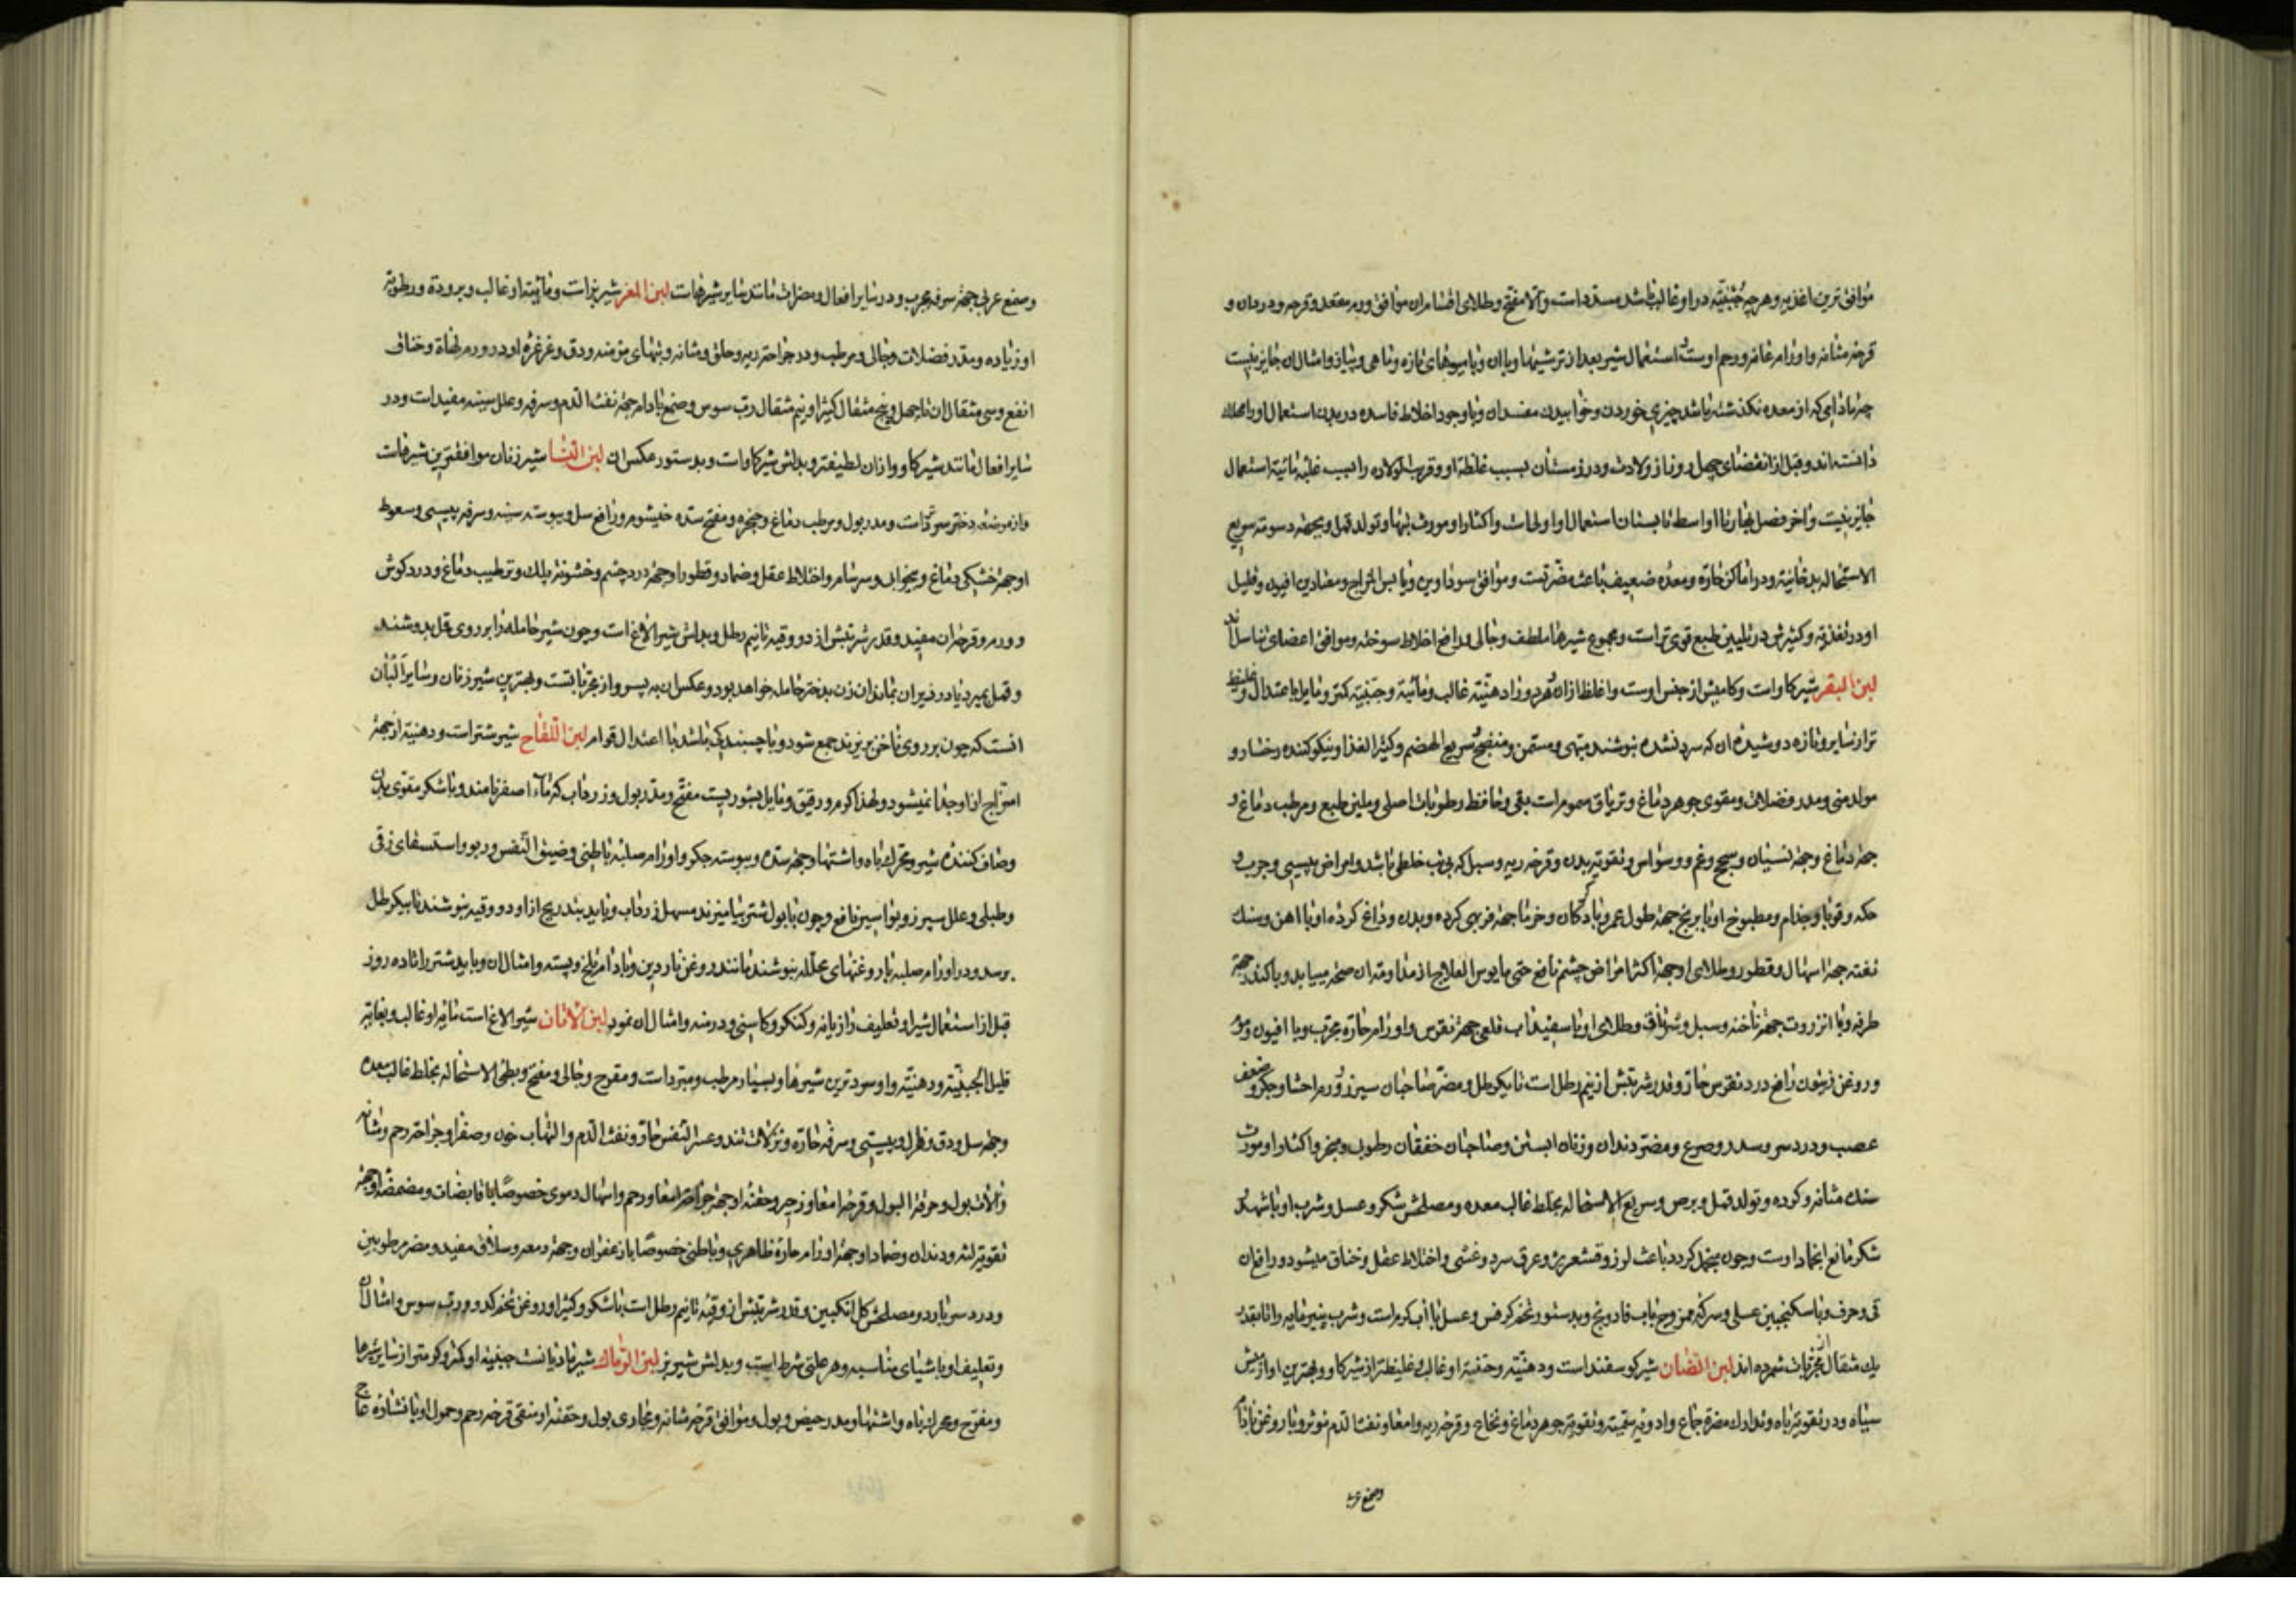 موافق ترین اغذیه و هرچه جبنیّه در او غالب باشد مسدد است و الا مفتح و طلای اقسام ان موافق ورم مقعد و قرحه و درد ان و
قرحه مثانه و اورام عانه و رحم اوست و استعمال شیر بعد از ترشیها و با ان و با میوهای تازه و ماهی و پیاز و امثال ان جایز نیست
چه مادامی که از معده نگذشته باشد چیزی خوردن و خوابیدن مفسد ان و با وجود اخلاط فاسده در بدن استعمال او را مهلک
دانسته اند و قبل از انقضای چهل روز از ولادت و در زمستان بسبب غلظة او و قرب الولاده را بسبب غلبه مائیة استعمال
جایز نیست و اخر فصل بهار تا اواسط تابستان استعمال او اولی است و اکثار او مورث تبها و تولد قمل و بجهة دسومة سریع
الاستحاله بدخانیة و در اماکن حارّه و معده ضعیف باعث مضرّتست و موافق سوداوین و یابس المزاج و معتادین افیون و قلیل
او در تغذیه و کثیرش در تلیین طبع قوی تر است و مجموع شیرها ملطف و جالی و دافع اخلاط سوخته و موافق اعضای تناسل اند
لبن البقر شیر کاو است و کامیش از جنس اوست و اغلظ از ان و در او دهنیّه غالب و مائیة و جبنیّه کمتر و مایل باعتدال و غلیظ
تر از سایر و تازه دوشیده ان که سرد نشده بنوشند مبهی و مسمن و منضج و سریع الهضم و کثیر الغذا و نیکو کننده رخسار و
مولد منی و مدر فضلات و مقوی جوهر دماغ و تریاق سموم است بقی و حافظ رطوبات اصلی و ملین طبع و مرطب دماغ و
جهة دماغ و جهة نسیان و سحج و غم و وسواس و تقویة بدن و قرحه ریه و سل که بی تب خلطی باشد و امراض یبسی و جرب و
حکه و قوبا و جذام و مطبوخ او با برنج جهة طول عمر و با دکان و خرما جهة فربهی کرده و بدن و داغ کرده او با اهن و سنك
تفته جهة اسهال و قطور و طلای او جهة اکثر امراض چشم نافع حتی مایوس العلاج از مداومت ان صحة مییابد و با کندر جهة
طرفه و با انزروت جهة ناخنه و سبل و شرناق و طلای او با سفیداب قلعی جهة نقرس و اورام حارّه مجرّب و با افیون و موم
و روغن زیتون رافع درد نقرس حار و قدر شربتش از نیم رطل است تا یکرطل و مضر صاحبان سپرز و ورم احشا و جکر و ضعف
عصب و درد سر و سدد و صرع و مضر دندان و زنان ابستن و صاحبان خفقان رطوبی و مبخر و اکثار او مورث
سنك مثانه و کرده و تولد قمل و برص و سریع الاستحاله بخلط غالب معده و مصلحش شکر و عسل و شرب او با شهد و
شکر مانع انجماد اوست و چون منجمد کردد باعث لرز و قشعریره و عرق سرد و غشی و اختلاط عقل و خناق میشود و رافع ان
قی و حرف و با سکنجبین عسلی و سرکه ممزوج باب فادونج و بدستور تخم کرفس و عسل با آب کرم است و شرب پنیرمایه را تا بقدر
یك مثقال از مجرّبات شمرده اند لبن الضان شیر کوسفند است و دهنیّه و جبنیة او غالب و غلیظتر از شیر کاو و بهترین او از میش
سیاه و در تقویة باه و تدارك مضرة جماع و ادویه سمّیه و تقویة جوهر دماغ و نخاع و قرحه ریه و امعا و نفث الدم موثر و با روغن بادام
وصمغ عربی
و صمغ عربی جهة سرفه مجرب و در سایر افعال و مضرات مانند سایر شیرهاست لبن المعز شیر بز است و مائیة او غالب و برودة و رطوبة
او زیاده و مدر فضلات و جالی و مرطب و در جراحة ریه و حلق و مثانه و تبهای مزمنه و دق و غرغره او در ورم لهاة و خناق
انفع و سی مثقال ان تا چهل و پنج مثقال کثیرا و نیم مثقال رب سوس و صمغ بادام جهة نفث الدم و سرفه و علل سینه مفید است و در
سایر افعال مانند شیر کاو و از ان لطیفتر و بدلش شیر کاو است و بدستور عکس ان لبن النسا شیر زنان موافقترین شیرهاست
و مدر بول و مرطب دماغ و حنجره و مفتح سده خیشوم و رافع سل و یبوسة سینه و سرفه یبسی و سعوط
او جهة خشکی دماغ و بیخوابی و سرسام و اختلاط عقل و ضماد و قطور او جهة درد چشم و خشونة پلك و ترطیب دماغ و درد کوش
و ورم و قرحه ان مفید و قدر شربتش از دو وقیه تا نیم رطل و بدلش شیر الاغ است و چون شیر حامله را بر روی قمل بدوشند
و قمل بمیرد یا در زیر ان بماند ان زن بدختر حامله خواهد بود و عکس ان به پسر و از مجرّباتست و بهترین شیر زنان و سایر البان
انست که چون بر روی ناخن بریزند جمع شود و با چسبندکی باشد با اعتدال قوام لبن اللقاح شیر شتر است و دهنیة از جهة
امتزاج از او جدا نمیشود و لهذا کرم و رقیق و مایل بشوریست مفتح و مدر بول و زرداب که ماء اصفر نامند و با شکر مقوی بدن
و صاف کننده بشره و محرّك باه و اشتها و جهة سده و یبوسة جکر و اورام صلبه باطنی و ضیق النفس و ربو و استسقای زقی
و طبلی و علل سپرز و بواسیر نافع و چون با بول شتر بیامیزند مسهل زرداب و باید بتدریج از او دو وقیه بنوشند تا بیکرطل
برسد و در اورام صلبه با روغنهای محلّله بنوشند مانند روغن ناردین و بادام تلخ و پسته و امثال ان و باید شتر را تا ده روز
قبل از استعمال شیر او تعلیف رازیانه و کنکر و کاسنی و درمنه و امثال ان نمود لبن الاتان شیر الاغ است مائیة او غالب و بغایة
قلیل الجبنیّه و دهنیّه و او سردترین شیرها و بسیار مرطب و مبرد است و مفرح و جالی و مفتح و بطی الاستحاله بخلط غالب معده
و جهة سل و دق و هزل و یبسی و سرفه حارّه و نزلات تند و عسر النفس حار و نفث الدم و التهاب خون و صفرا و جراحة رحم و مثانه
و الات بول و حرقة البول و قرحه امعا و زحیر و حقنه او جهة جراحة امعا و رحم و اسهال دموی خصوصًا با قابضات و مضمضه او جهة
تقویة لثه و دندان و ضماد او جهة اورام حارة ظاهری و باطنی خصوصًا با زعفران و جهة دمعه و سلاق مفید و مضر مرطوبین
و درد سر بارد و مصلحش کل انکبین و قدر شربتش از وقیه تا نیم رطل است با شکر و کثیرا و روغن تخم کدو و رب سوس و امثال ان
و تعلیف او باشیای مناسبه و هر علتی شرط است و بدلش شیر بز لبن الرماك شیر مادیانست جبنیة او کمتر و کرمتر از سایر شیرها
و مفرح و محرك باه و اشتها و مدر حیض و بول و موافق قرحه مثانه و مجاری بول و حقنه او منقی قرحه رحم و حمول او با نشاره عاج